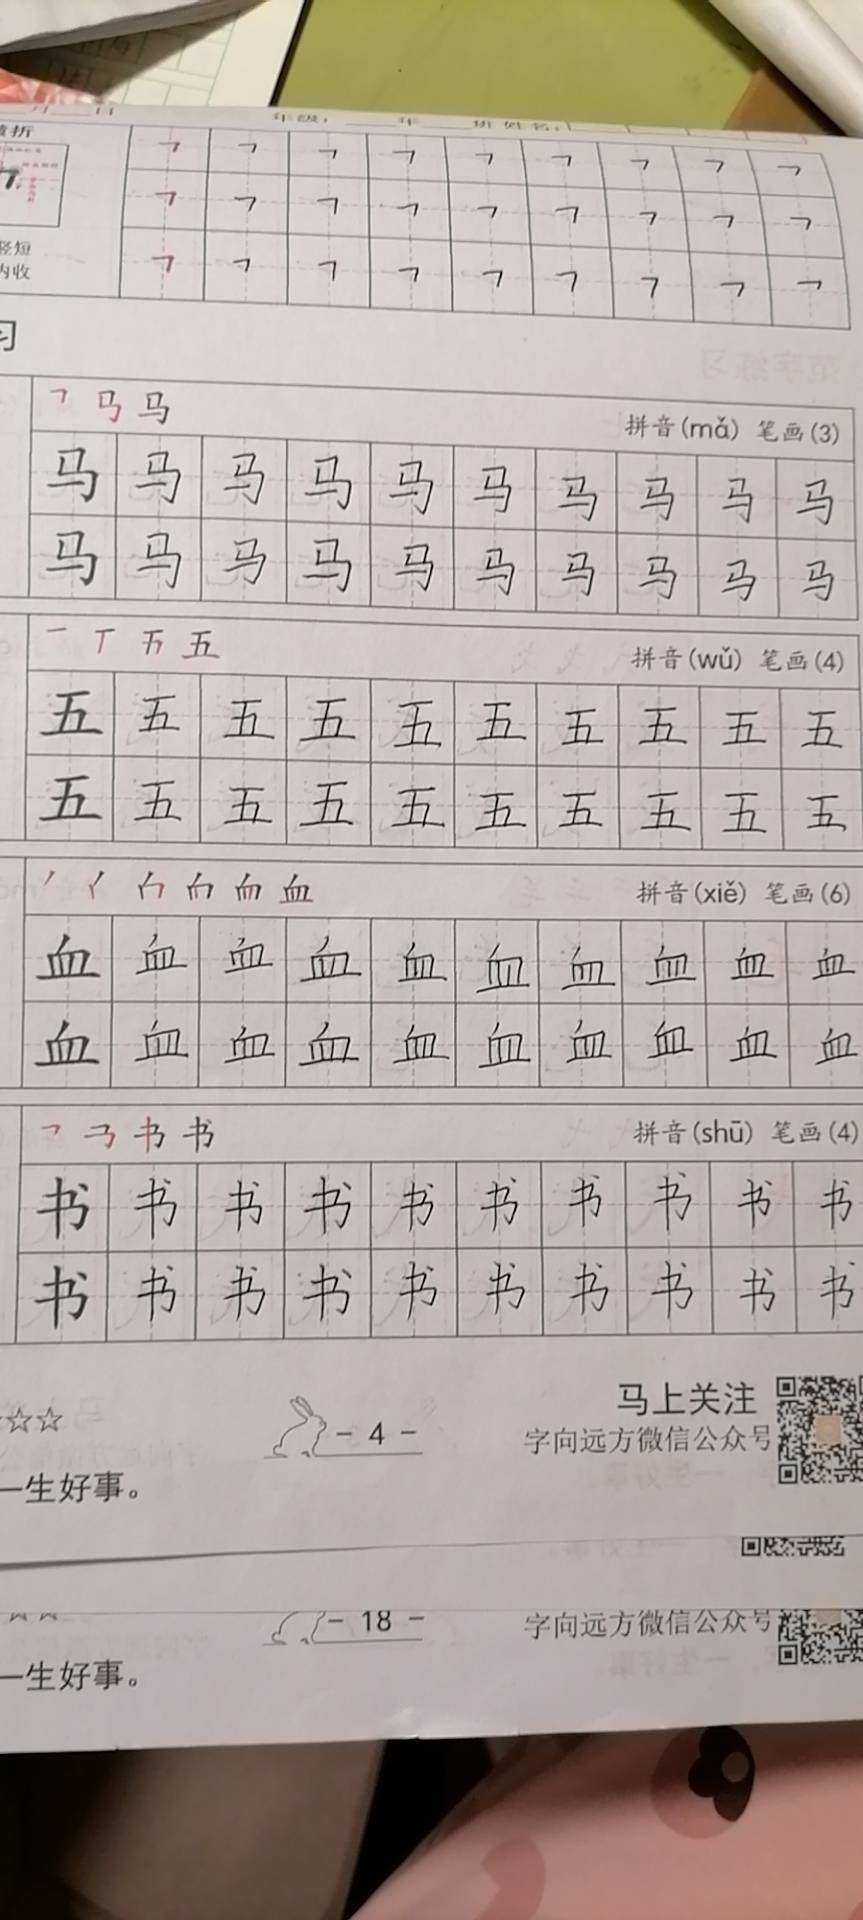 月 日 年级： 年 班 姓名：
横折
竖短
内收
㇕ ㇕ ㇕ ㇕ ㇕ ㇕ ㇕ ㇕ ㇕
㇕ ㇕ ㇕ ㇕ ㇕ ㇕ ㇕ ㇕ ㇕
㇕ ㇕ ㇕ ㇕ ㇕ ㇕ ㇕ ㇕ ㇕
习
马 拼音(mǎ) 笔画(3)
马 马 马 马 马 马 马 马 马 马
马 马 马 马 马 马 马 马 马 马
一 丅 五 拼音(wǔ) 笔画(4)
五 五 五 五 五 五 五 五 五 五
五 五 五 五 五 五 五 五 五 五
血 拼音(xiě) 笔画(6)
血 血 血 血 血 血 血 血 血 血
血 血 血 血 血 血 血 血 血 血
书 拼音(shū) 笔画(4)
书 书 书 书 书 书 书 书 书 书
书 书 书 书 书 书 书 书 书 书
☆☆ - 4 - 马上关注
字向远方微信公众号
一生好事。
- 18 - 字向远方微信公众号
一生好事。